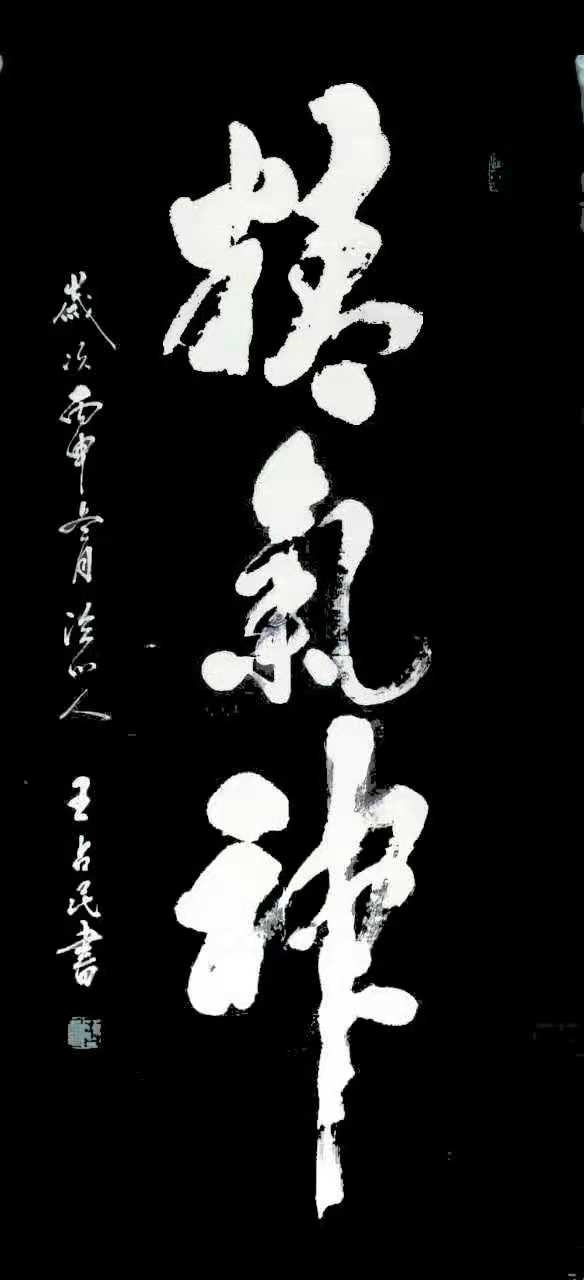 精氣神
歲次丙申 月 人 王占民書